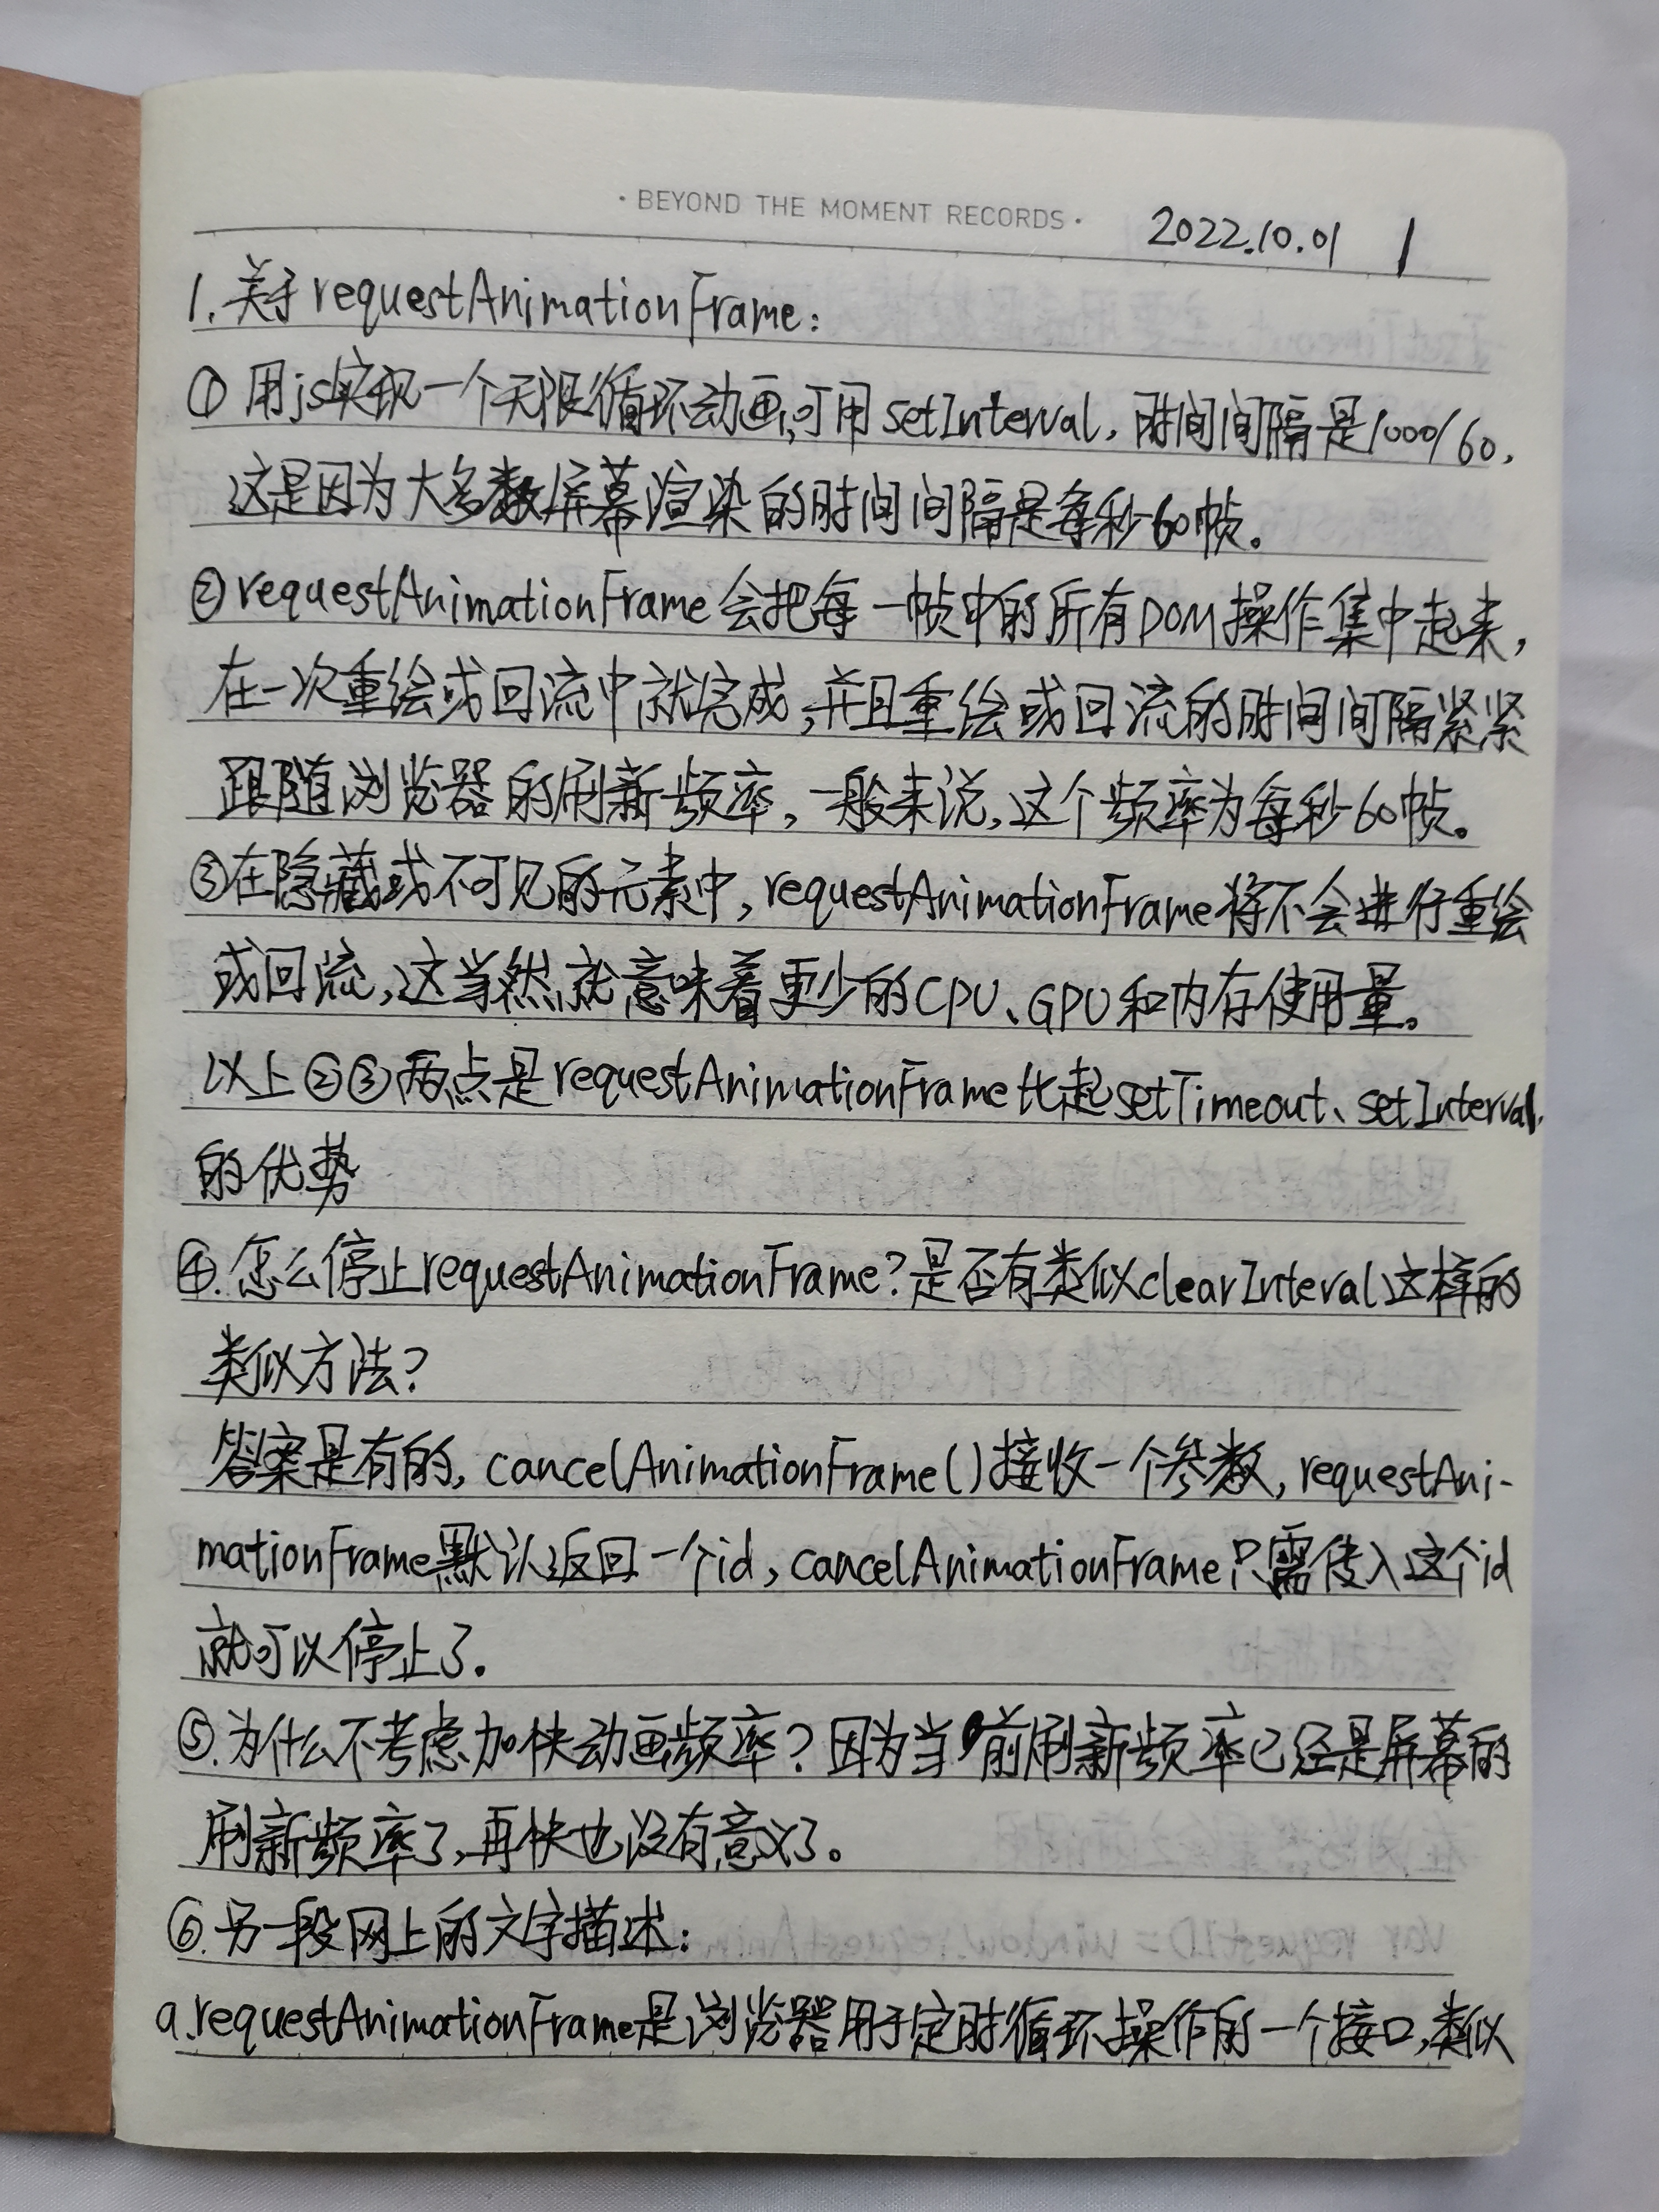 · BEYOND THE MOMENT RECORDS ·
2022.10.01 1
1.关于requestAnimationFrame:
① 用js实现一个无限循环动画,可用setInterval,时间间隔是1000/60,
这是因为大多数屏幕渲染的时间间隔是每秒60帧。
②requestAnimationFrame会把每一帧中的所有DOM操作集中起来,
在一次重绘或回流中就完成,并且重绘或回流的时间间隔紧紧
跟随浏览器的刷新频率,一般来说,这个频率为每秒60帧。
③在隐藏或不可见的元素中,requestAnimationFrame将不会进行重绘
或回流,这当然就意味着更少的CPU、GPU和内存使用量。
以上②③两点是requestAnimationFrame比起setTimeout、setInterval
的优势
④.怎么停止requestAnimationFrame?是否有类似clearInteval这样的
类似方法?
答案是有的,cancelAnimationFrame()接收一个参数,requestAni-
mationFrame默认返回一个id,cancelAnimationFrame只需传入这个id
就可以停止了.
⑤.为什么不考虑加快动画频率?因为当前刷新频率已经是屏幕的
刷新频率了,再快也没有意义了。
⑥.另一段网上的文字描述:
a.requestAnimationFrame是浏览器用于定时循环操作的一个接口,类似